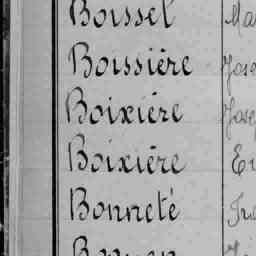 Boissel Ma
Boissière Jose
Boixière Jose
Boixière Er
Bonneté